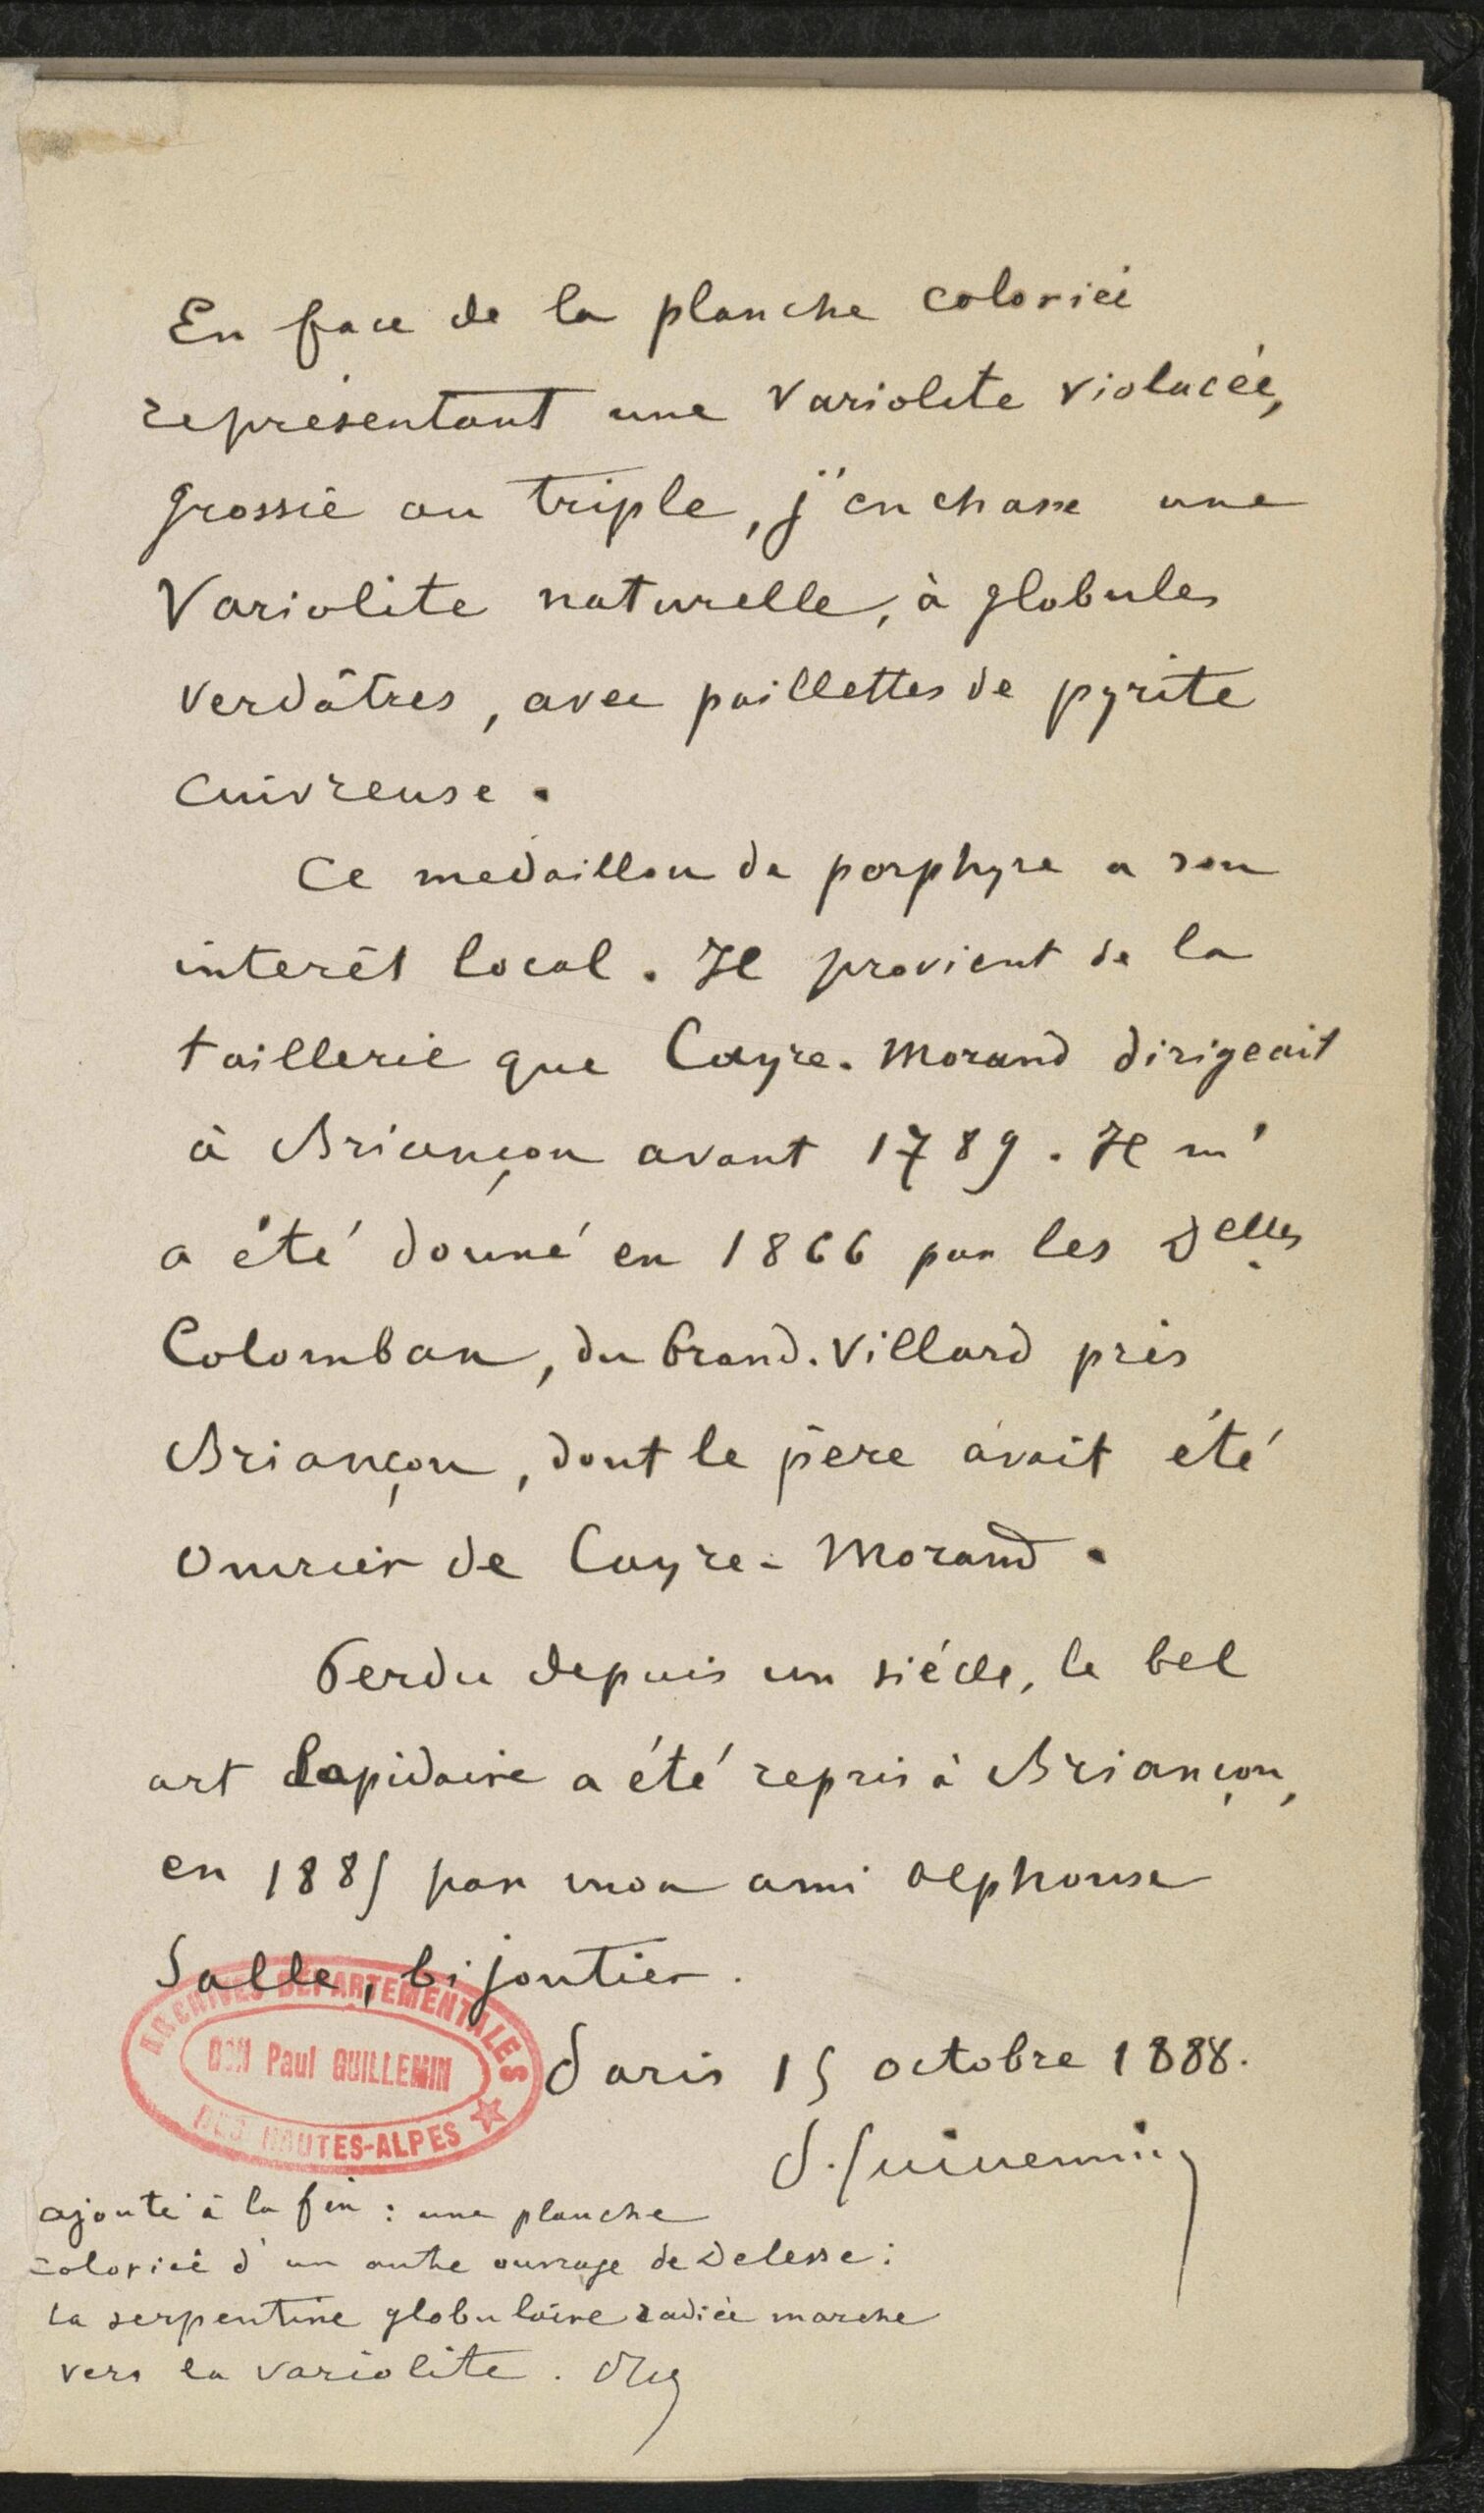 En face de la planche coloriée
représentant une Variolite violacée,
grossie au triple, j'enchasse une
Variolite naturelle, à globules
verdâtres, avec paillettes de pyrite
cuivreuse.
Ce medaillon de porphyre a son
interêt local. Il provient de la
taillerie que Cayre-Morand dirigeait
à Briançon avant 1789. Il m'
a été donné en 1866 par les Delles
Colomban, du Grand-Villard près
Briançon, dont le père avait été
ouvrier de Cayre-Morand.
Perdu depuis un siécle, le bel
art lapidaire a été repris à Briançon,
en 1885 par mon ami Alphonse
Salle, bijoutier.
ARCHIVES DEPARTEMENTALES
DON Paul GUILLEMIN
DES HAUTES-ALPES
Paris 15 octobre 1888.
P. Guillemin
ajouté à la fin : une planche
coloriée d'un autre ouvrage de Delesse :
la serpentine globulaire radiée marche
vers la variolite.